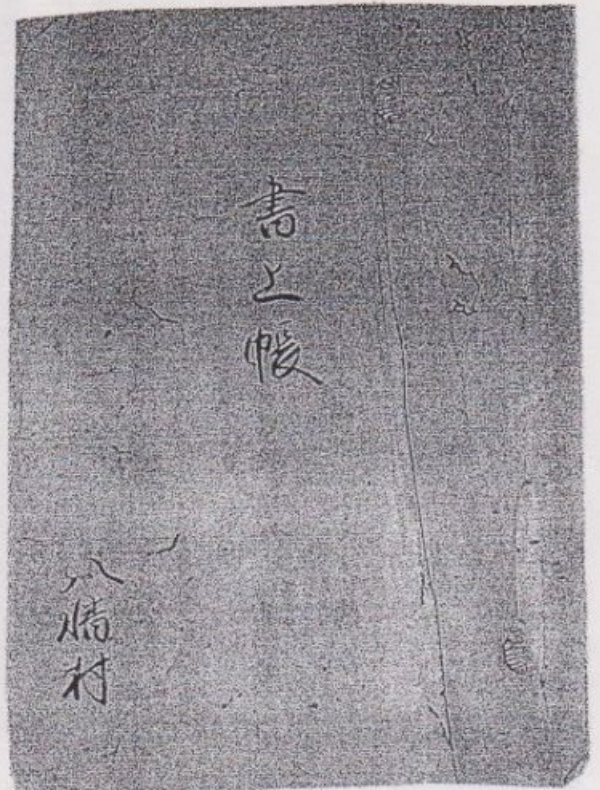 書上帳
八幡村